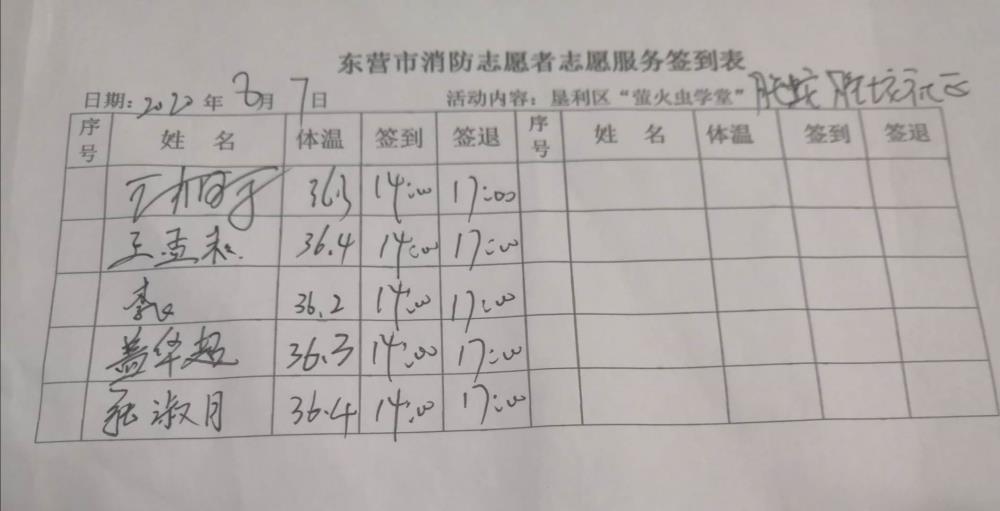 东营市消防志愿者志愿服务签到表
日期：2020年8月7日 活动内容：垦利区“萤火虫学堂”
序号 姓 名 体温 签到 签退 序号 姓 名 体温 签到 签退
36.3 14:00 17:00
王孟 36.4 14:00 17:00
李 36.2 14:00 17:00
盖华超 36.3 14:00 17:00
张淑月 36.4 14:00 17:00